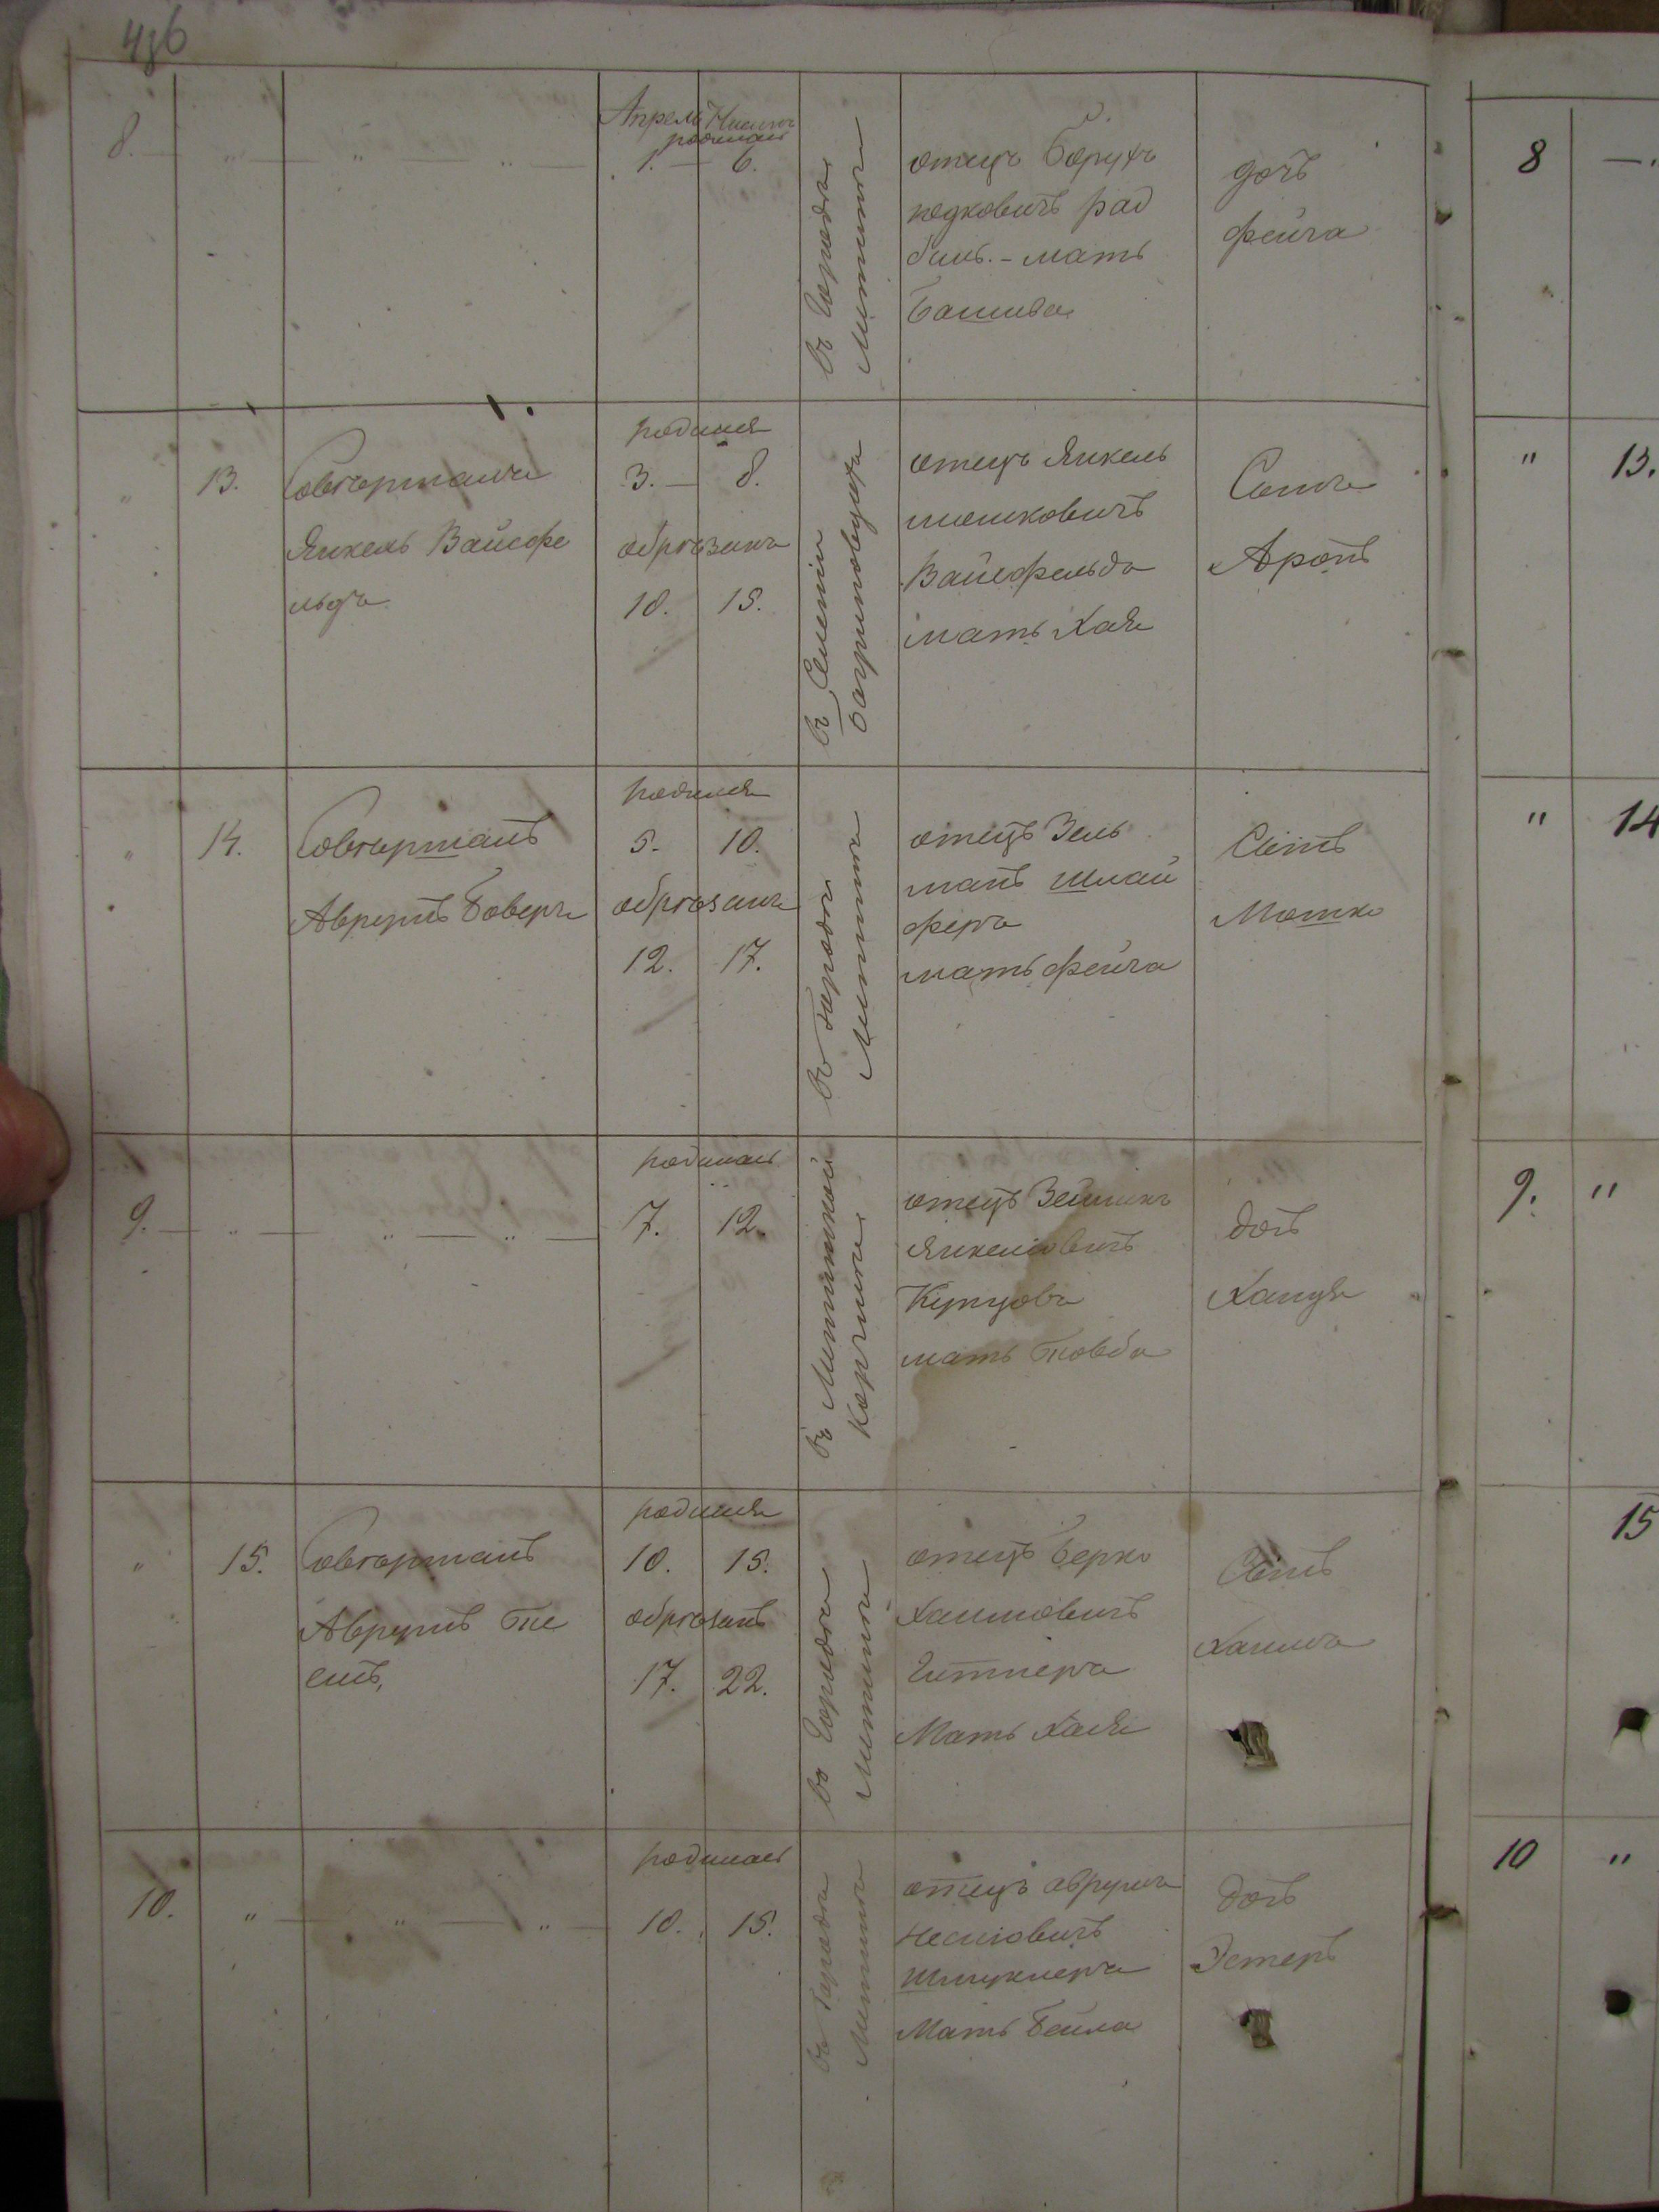 436
8. — „ — „ — „ —
Апрель Нисанъ
родилась
1. — 6.
въ Городѣ
Литинѣ
отецъ Борухъ
иодковичъ рад
биль. - мать
Башива
дочь
фейга
„ 13.
Совершалъ
Янкель Вайсфе
льдъ
родился
3. — 8.
обрѣзанъ
10. 15.
въ Селеніи
Багриновцахъ
отецъ Янкель
мошковичъ
Вайсфельдъ
мать Хая
Сынъ
Аронъ
„ 14.
Совершалъ
Аврумъ Боверъ
родился
5. 10.
обрѣзанъ
12. 17.
въ городѣ
Литинѣ
отецъ Зель
манъ шлай
феръ
мать фейга
Сынъ
Мошко
9. — „ — „ — „ —
родилась
7. 12.
въ Литинкой
Корчмѣ
отецъ Зейликъ
Янкелевичъ
Купцовъ
мать товба
дочь
Ханця
„ 15.
Совершалъ
Аврумъ
родился
10. 15.
обрѣзанъ
17. 22.
въ Городѣ
Литинѣ
отецъ Берко
Хаимовичъ
Гитнеръ
Мать Хая
Сынъ
Хаимъ
10. „ — „ — „ —
родилась
10. 15.
въ городѣ
Литинѣ
отецъ аврумъ
Шмуклеръ
Мать Бейла
дочь
Эстеръ
8 —
„ 13.
„ 14
9. „
15
10 „